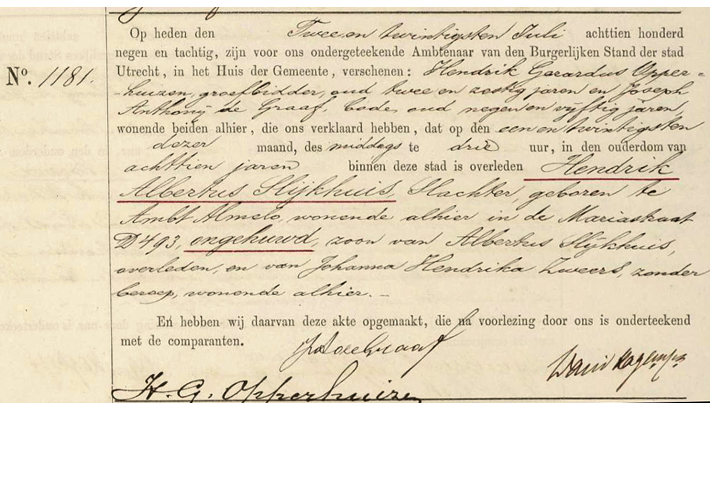 Op heden den Twee en twintigsten Juli achttien honderd
negen en tachtig, zijn voor ons ondergeteekende Ambtenaar van den Burgerlijken Stand der stad
Nº. 1181. Utrecht, in het Huis der Gemeente, verschenen: Hendrik Gerardus Opper-
huizen, groefbidder, oud twee en zestig jaren en Joseph
Anthonij de Graaf, bode, oud negen en vijftig jaren,
wonende beiden alhier, die ons verklaard hebben, dat op den een en twintigsten
dezer maand, des middags te drie uur, in den ouderdom van
achttien jaren binnen deze stad is overleden Hendrik
Albertus Slijkhuis, Slachter, geboren te
Ambt Almelo, wonende alhier in de Mariastraat
D 493, ongehuwd, zoon van Albertus Slijkhuis,
overleden, en van Johanna Hendrika Zweers, zonder
beroep, wonende alhier. –
En hebben wij daarvan deze akte opgemaakt, die na voorlezing door ons is onderteekend
met de comparanten. JAdeGraaf
H. G. Opperhuizen